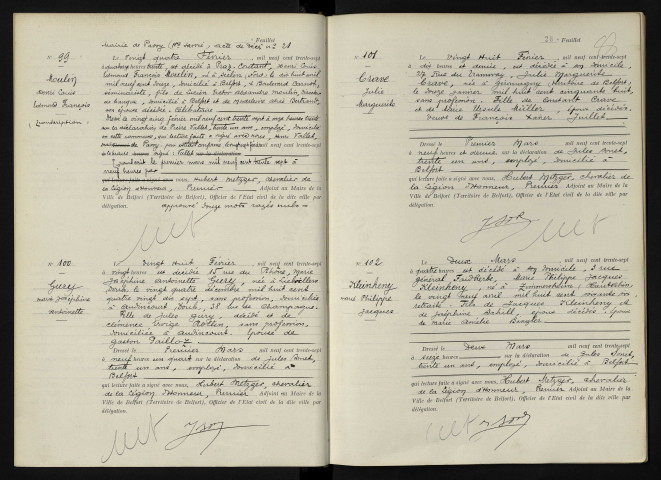 Feuillet
Mairie de Passy (Hte Savoie) acte de décès n° 21
N° 99
Moulin
Henri Louis
Edmond François
(Transcription)
Le Vingt quatre Février mil neuf cent trente-sept
à quatorze heures trente, est décédé à Praz-Coutant, Henri Louis
Edmond François Moulin, né à
mil neuf cent onze, domicilié à Belfort,
séminariste, fils de Victor
de banque, domicilié à Belfort et de Madeleine
son épouse décédée. Célibataire
Dressé le vingt cinq février mil neuf cent trente sept à onze heures trente
sur la déclaration de Pierre Vallet, trente un ans, employé, domicilié
en cette commune, qui lecture faite a signé avec nous, Henri Vallet,
Transcrit le premier mars mil neuf cent trente sept à
neuf heures par
Hubert Metzger, chevalier de
la Légion d'Honneur, Premier Adjoint au Maire de la
Ville de Belfort (Territoire de Belfort), Officier de l'Etat civil de la dite ville par
délégation. Approuvé douze mots rayés nuls
N° 100
Guery
Marie Joséphine
Antoinette
Le Vingt huit Février mil neuf cent trente-sept
à vingt heures est décédée 15 rue du Rhône, Marie
Joséphine Antoinette Guery, née à Lachapelle
le vingt quatre décembre mil huit cent
quatre vingt dix sept, sans profession, domiciliée
à Audincourt, Doubs, 38 rue de Champagne.
Fille de Jules Guery, décédé et de
Clémence Eroïse Rotlin, sans profession,
domiciliée à Audincourt. Epouse de
Gaston Pailloz
Dressé le Premier Mars mil neuf cent trente-sept
à neuf heures un quart sur la déclaration de Jules Sonet,
trente un ans, employé, domicilié à
Belfort
qui lecture faite a signé avec nous, Hubert Metzger, chevalier
de la Légion d'Honneur, Premier Adjoint au Maire de la
Ville de Belfort (Territoire de Belfort), Officier de l'Etat civil de la dite ville par
délégation.
26 Feuillet
N° 101
Crave
Julie
Marguerite
Le Vingt huit Février mil neuf cent trente-sept
à dix heures et demie, est décédée à son domicile
27 Rue du Tramway, Julie Marguerite
Crave, née à Giromagny (Territoire de Belfort),
le douze janvier mil huit cent cinquante huit,
sans profession. Fille de Constant Crave
et de Anne Ursule Müller, époux décédés.
Veuve de François Xavier Juillet
Dressé le Premier Mars mil neuf cent trente-sept
à neuf heures et demie, sur la déclaration de Jules Sonet,
trente un ans, employé, domicilié à
Belfort
qui lecture faite a signé avec nous, Hubert Metzger, chevalier de
la Légion d'Honneur, Premier Adjoint au Maire de la
Ville de Belfort (Territoire de Belfort), Officier de l'Etat civil de la dite ville par
délégation.
N° 102
Kleinheny
Marie Philippe
Jacques
Le Deux Mars mil neuf cent trente-sept
à quatre heures est décédé à son domicile, 3 rue
général Foltz, Marie Philippe Jacques
Kleinheny, né à Zimmersheim (Haut-Rhin),
le vingt cinq avril mil huit cent soixante
retraité. Fils de Jacques Kleinheny et
de Joséphine Schill, époux décédés. Epoux
de Marie Amélie Bingler
Dressé le Deux Mars mil neuf cent trente-sept
à seize heures sur la déclaration de Jules Sonet,
trente un ans, employé, domicilié à Belfort
qui lecture faite a signé avec nous, Hubert Metzger, chevalier
de la Légion d'Honneur, Premier Adjoint au Maire de la
Ville de Belfort (Territoire de Belfort), Officier de l'Etat civil de la dite ville par
délégation.